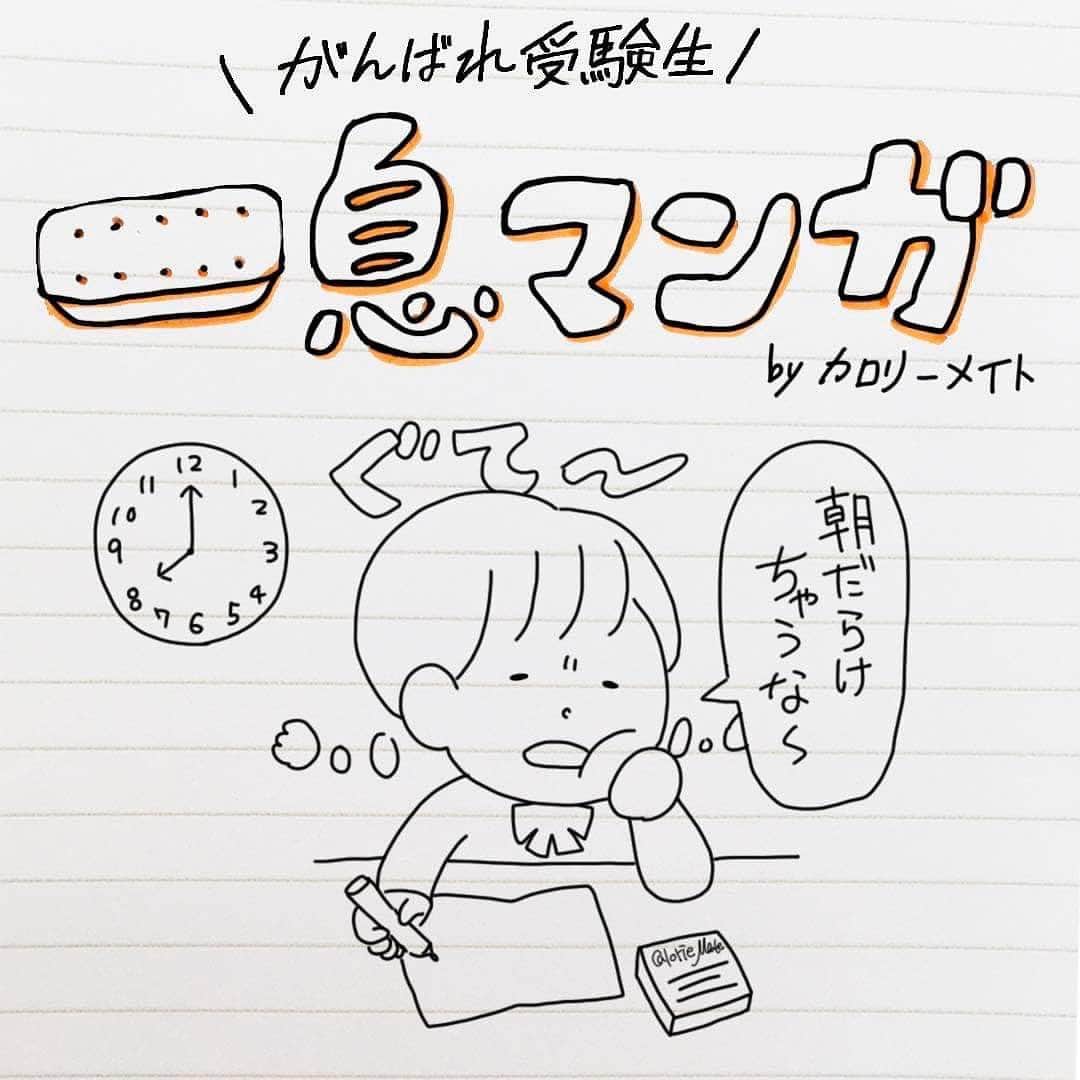 \ がんばれ受験生 /
一息マンガ
by カロリーメイト
ぐて〜
12
1
2
3
4
5
6
7
8
9
10
11
朝だらけ
ちゃうな〜
CalorieMate